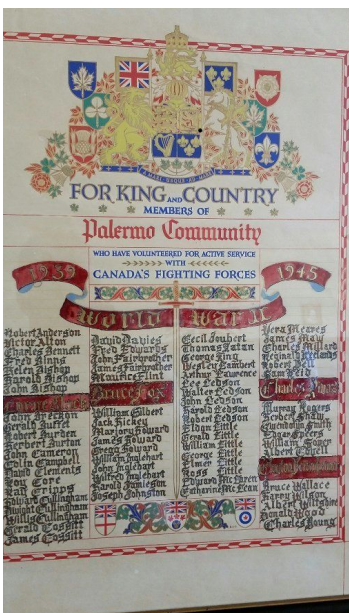 FOR KING AND COUNTRY
MEMBERS OF
Palermo Community
WHO HAVE VOLUNTEERED FOR ACTIVE SERVICE
WITH
CANADA'S FIGHTING FORCES
1939
1945
World War II
Robert Anderson
Victor Alton
Charles Bennett
Fred Binns
Helen Bishop
Harold Bishop
John Bishop
Gerald Buffet
Robert Burden
Herbert Burton
John Cameron
Colin Campbell
David Clements
Roy Core
Karl Cripps
Edward Cullingham
Dwight Cullingham
Willis Cullingham
Gerald Cossitt
James Cossitt
David Davies
Fred Edwards
John Fairbrother
James Fairbrother
Maurice Flint
Bruce Fox
William Gilbert
Jack Hickey
Marjory Howard
James Howard
Gregg Howard
William Inglehart
John Inglehart
Wilfred Inglehart
Harold Jamieson
Joseph Johnston
Cecil Joubert
Thomas
George King
Wesley
Arthur Lawrence
Lee Ledson
Walter Ledson
John Ledson
Harold Ledson
Robert Ledson
Eldon Little
Gerald Little
William Little
George Little
Elmer Little
Ross Little
Edward McLaren
Catharine McLean
Vera Meaves
James May
Charles Millard
Reginald
Robert Bell
Sam Reid
Charles
Murray Rogers
Herbert
Gwendolyn Smith
Edgar Speers
William
Albert
Bruce Wallace
Harry Wilson
Albert Wiltshire
Donald Wood
Charles Young